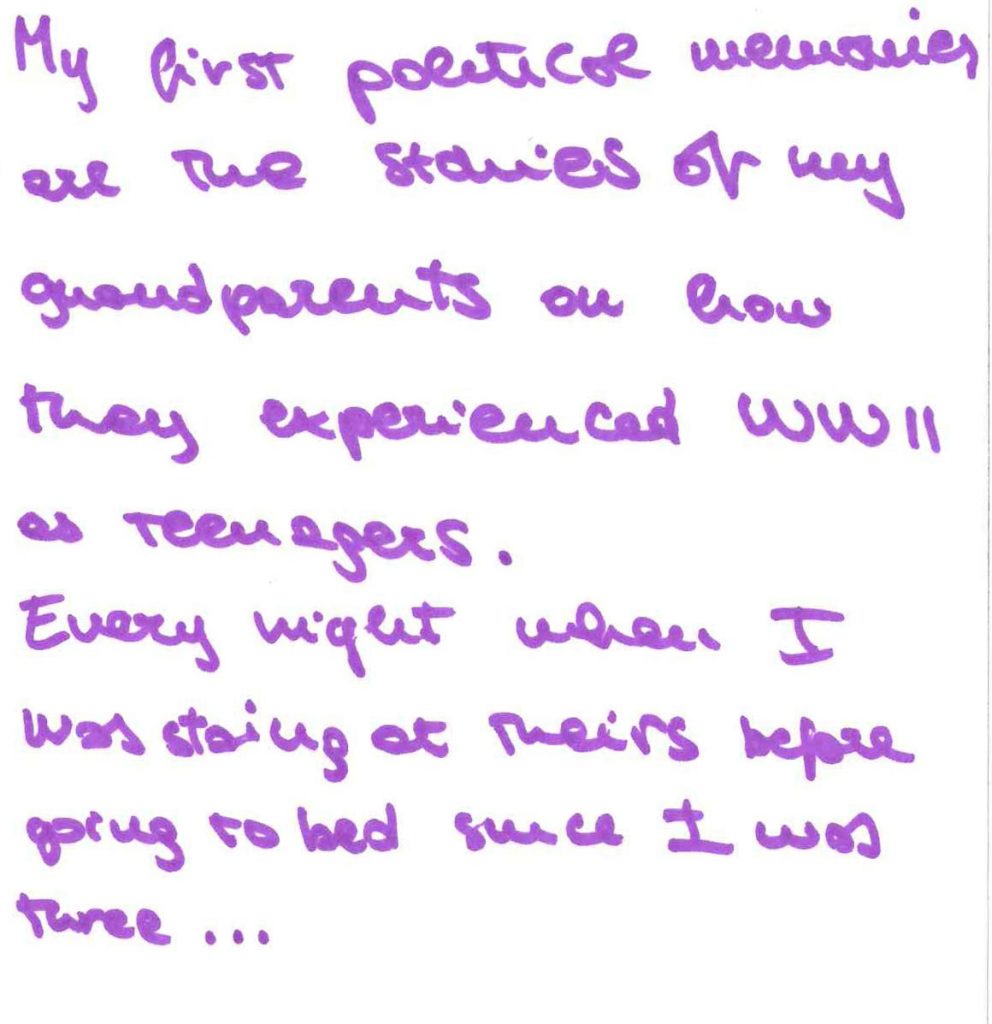 My first political memories
are the stories of my
grandparents on how
they experienced WWII
as teenagers.
Every night when I
was staing at theirs before
going to bed since I was
three...